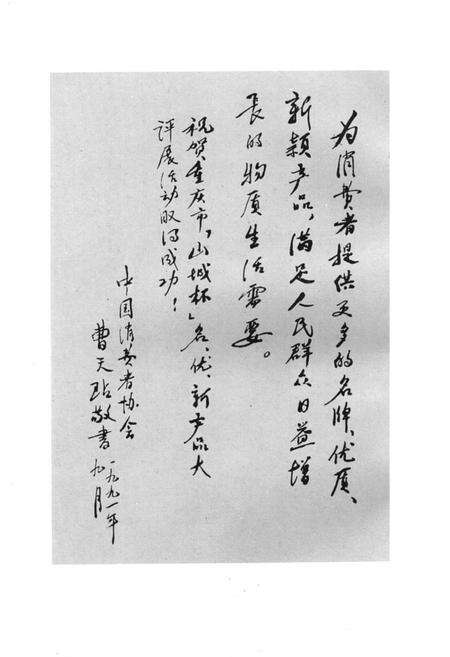 为消费者提供更多的名牌、优质、
新颖产品，满足人民群众日益增
长的物质生活需要。
祝贺重庆市“山城杯”名、优、新产品大
评展活动取得成功！
中国消费者协会
曹天玷敬书
一九九一年
九月